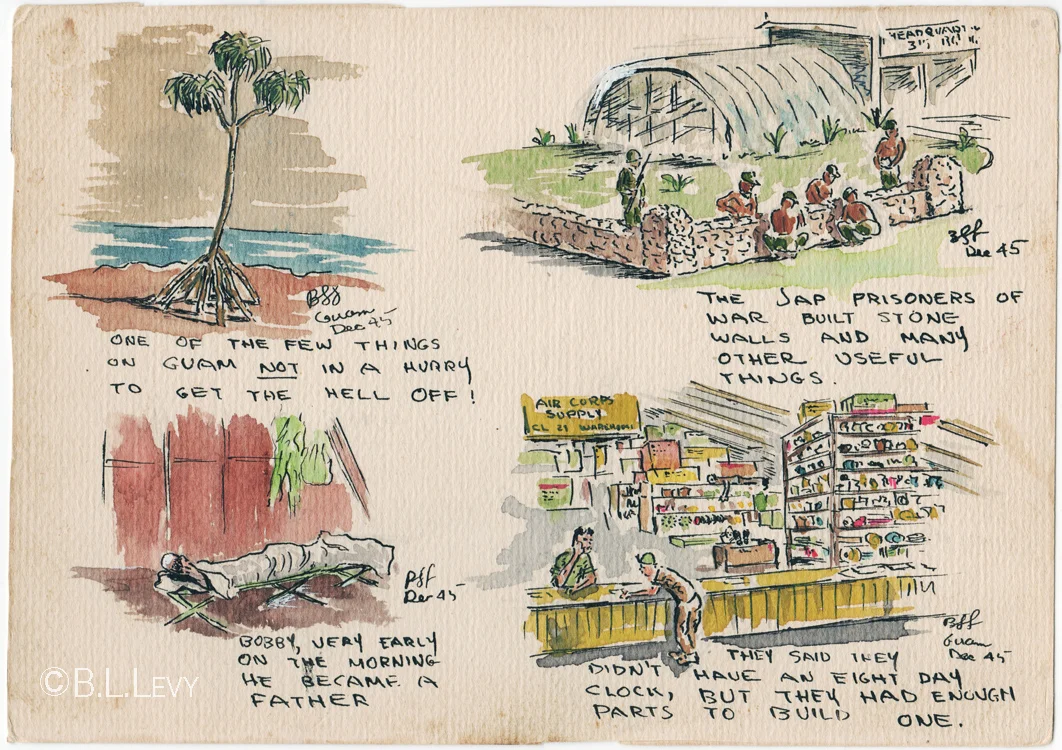 Bff
Guam
Dec 45
ONE OF THE FEW THINGS
ON GUAM NOT IN A HURRY
TO GET THE HELL OFF!
HEADQUART
Bff
Dec 45
THE JAP PRISONERS OF
WAR BUILT STONE
WALLS AND MANY
OTHER USEFUL
THINGS.
Bff
Dec 45
BOBBY, VERY EARLY
ON THE MORNING
HE BECAME A
FATHER
AIR CORPS
SUPPLY
CL 21 WAREHOUS
Bff
Guam
Dec 45
THEY SAID THEY
DIDN'T HAVE AN EIGHT DAY
CLOCK, BUT THEY HAD ENOUGH
PARTS TO BUILD ONE.
©B.L.LEVY